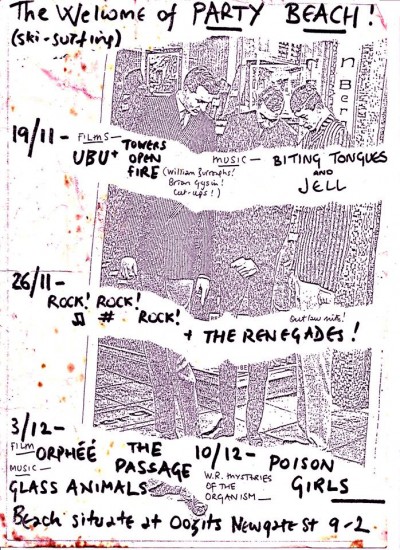 The Wellcome of PARTY BEACH!
(ski-surfing)
19/11 -
FILMS —
UBU +
TOWERS
OPEN
FIRE
(William Burroughs!
Brian Gysin!
Cut-ups!)
MUSIC —
BITING TONGUES
AND
JELL
26/11 -
ROCK! ROCK!
♫ # ROCK!
Outlaw nite!
+ THE RENEGADES!
3/12 -
FILM
ORPHÉÉ
MUSIC —
GLASS ANIMALS
THE
PASSAGE
10/12 -
W.R. MYSTERIES
OF THE
ORGANISM —
POISON
GIRLS
Beach situate at Oozits Newgate St 9-2